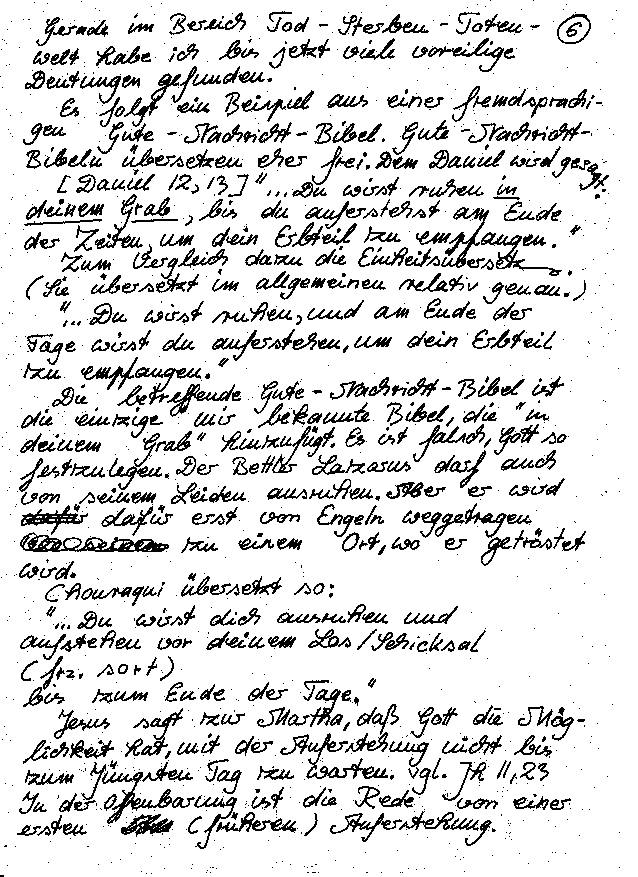 Gerade im Bereich Tod - Sterben - Toten- 6
welt habe ich bis jetzt viele voreilige
Deutungen gefunden.
Es folgt ein Beispiel aus einer fremdsprachi-
gen Gute - Nachricht - Bibel. Gute - Nachricht-
Bibeln übersetzen eher frei. Dem Daniel wird gesagt:
[Daniel 12,13] "... Du wirst ruhen in
deinem Grab, bis du auferstehst am Ende
der Zeiten, um dein Erbteil zu empfangen."
Zum Vergleich dazu die Einheitsübersetz.
(Sie übersetzt im allgemeinen relativ genau.)
"... Du wirst ruhen, und am Ende der
Tage wirst du auferstehen, um dein Erbteil
zu empfangen."
Die betreffende Gute - Nachricht - Bibel ist
die einzige mir bekannte Bibel, die "in
deinem Grab" hinzufügt. Es ist falsch, Gott so
festzulegen. Der Bettler Lazarus darf auch
von seinem Leiden ausruhen. Aber er wird
dafür dafür erst von Engeln weggetragen
zu einem Ort, wo er getröstet
wird.
Chouraqui übersetzt so:
"... Du wirst dich ausruhen und
aufstehen vor deinem Los/Schicksal
(frz. sort)
bis zum Ende der Tage."
Jesus sagt zur Martha, daß Gott die Mög-
lichkeit hat, mit der Auferstehung nicht bis
zum Jüngsten Tag zu warten. vgl. Jh 11,23
In der Offenbarung ist die Rede von einer
ersten (früheren) Auferstehung.